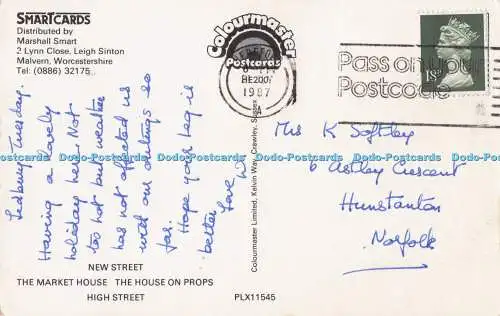 SMARTCARDS
Distributed by
Marshall Smart
2 Lynn Close, Leigh Sinton
Malvern, Worcestershire
Tel: (0886) 32175
Ledbury Tuesday.
Having a lovely
holiday here. Not
too hot but weather
has not affected us
with our outings so
far.
Hope your leg is
better
Love
NEW STREET
THE MARKET HOUSE THE HOUSE ON PROPS
HIGH STREET
PLX11545
Colourmaster
Postcards
Colourmaster Limited, Kelvin Way, Crawley, Sussex
1987
Pass on your
Postcode
18P
Mrs K Softley
6 Astley Crescent
Hunstanton
Norfolk
Dodo-Postcards Dodo-Postcards Dodo-Postcards Dodo-Postcards Dodo-Postcards Dodo-Postcards